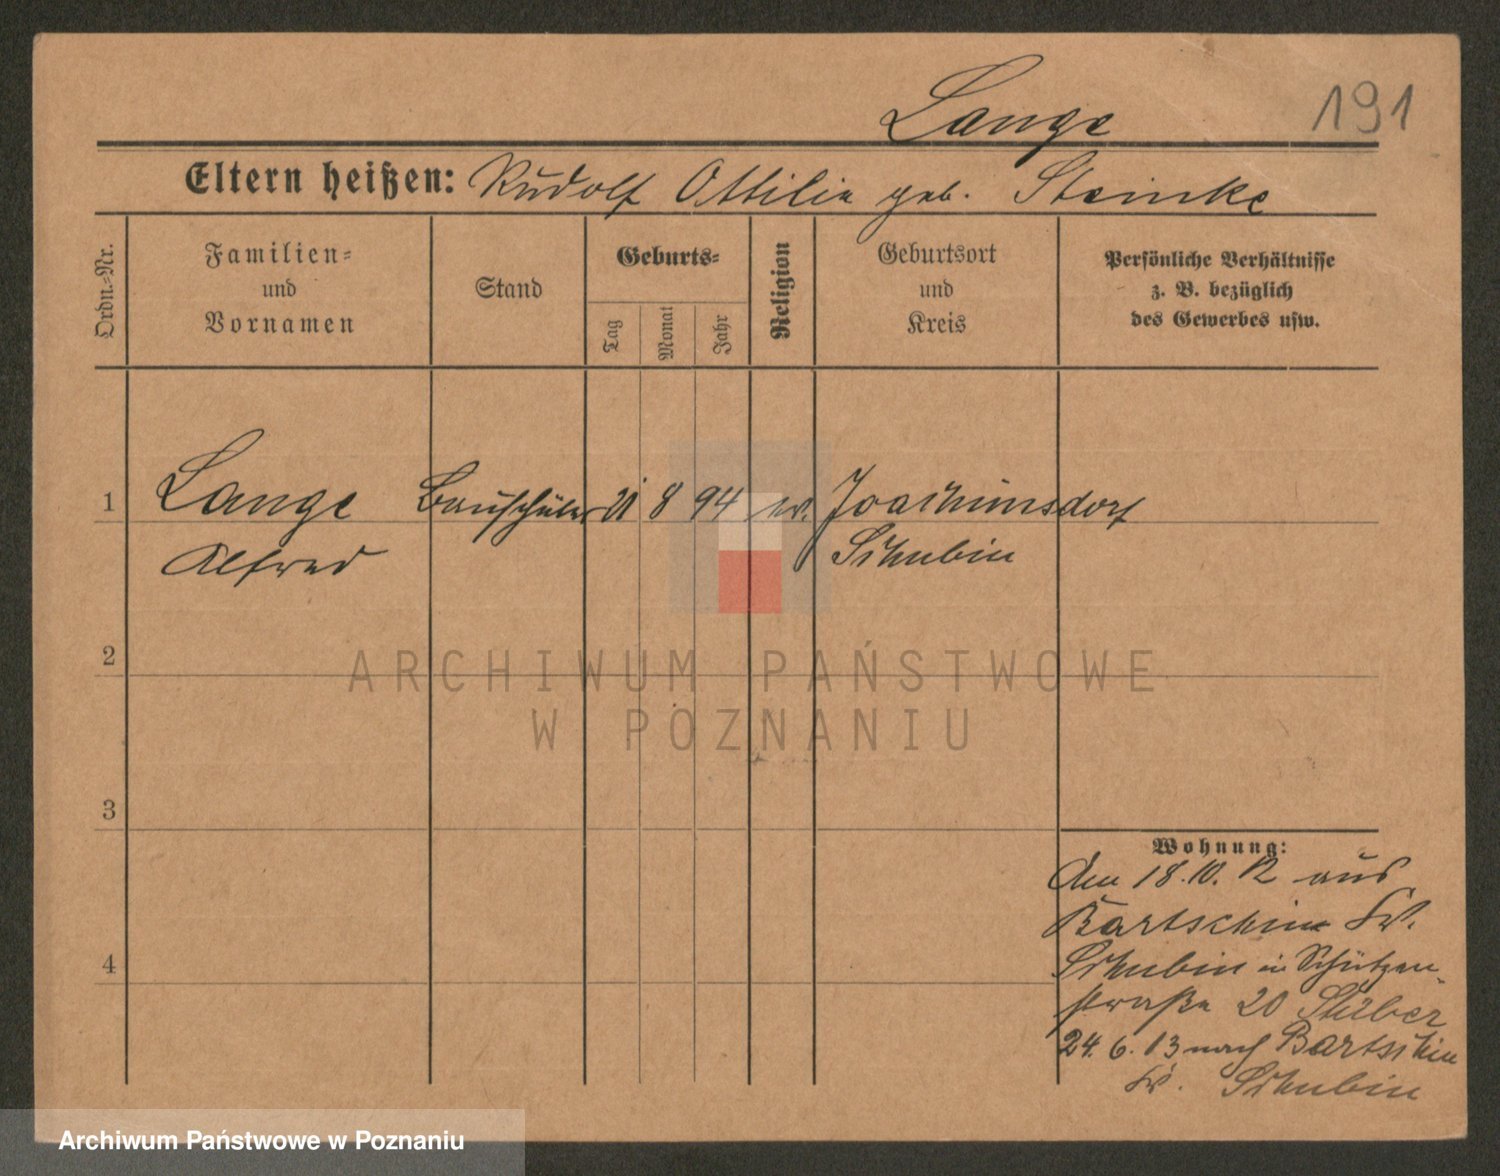 Lange 191
Eltern heißen: Rudolf Ottilie geb. Steinke
Ordn.-Nr.
Familien-
und
Vornamen
Stand
Geburts-
Tag
Monat
Jahr
Religion
Geburtsort
und
Kreis
Persönliche Verhältnisse
z. B. bezüglich
des Gewerbes usw.
1 Lange Bauschüler 21 8 94 ev. Joachimsdorf
Alfred Schubin
2
ARCHIWUM PAŃSTWOWE
W POZNANIU
3
Wohnung:
Am 18.10.12 aus
Bartschin Kr.
4
Schubin in Schützen-
straße 20 Stüber
24.6.13 nach Bartschin
Kr. Schubin
Archiwum Państwowe w Poznaniu